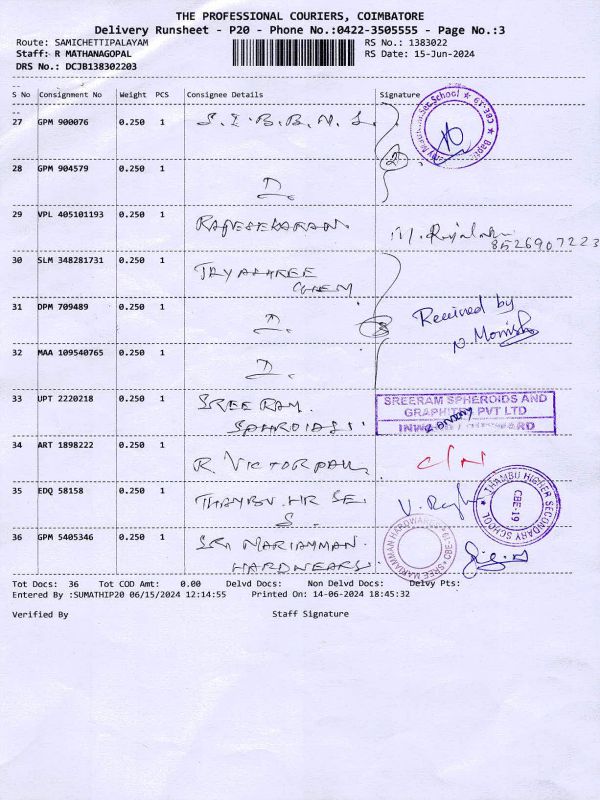 THE PROFESSIONAL COURIERS, COIMBATORE
Delivery Runsheet - P20 - Phone No.:0422-3505555 - Page No.:3
Route: SAMICHETTIPALAYAM
Staff: R MATHANAGOPAL
DRS No.: DCJB138302203
RS No.: 1383022
RS Date: 15-Jun-2024
S No Consignment No Weight PCS Consignee Details Signature
27 GPM 900076 0.250 1 S.I.B.B.N.S.
28 GPM 904579 0.250 1 D.
29 VPL 405101193 0.250 1 RAJESEKARAN. 8526907223
30 SLM 348281731 0.250 1 JEYASHREE
CHEM.
31 DPM 709489 0.250 1 D. Received by
N. Monisha
32 MAA 109540765 0.250 1 D.
33 UPT 2220218 0.250 1 SREE RAM. SREERAM SPHEROIDS AND
GRAPHITES PVT LTD
INWARD
34 ART 1898222 0.250 1 R. VICTORPAUL C/N
35 EDQ 58158 0.250 1 THAMBU HR SE.
S. THAMBU HIGHER SECONDARY SCHOOL CBE-19
36 GPM 5405346 0.250 1 SRI MARIAMMAN.
HARDWEARS. SREE MARIAMMAN HARDWARES
Tot Docs: 36 Tot COD Amt: 0.00 Delvd Docs: Non Delvd Docs: Delvy Pts:
Entered By :SUMATHIP20 06/15/2024 12:14:55 Printed On: 14-06-2024 18:45:32
Verified By Staff Signature